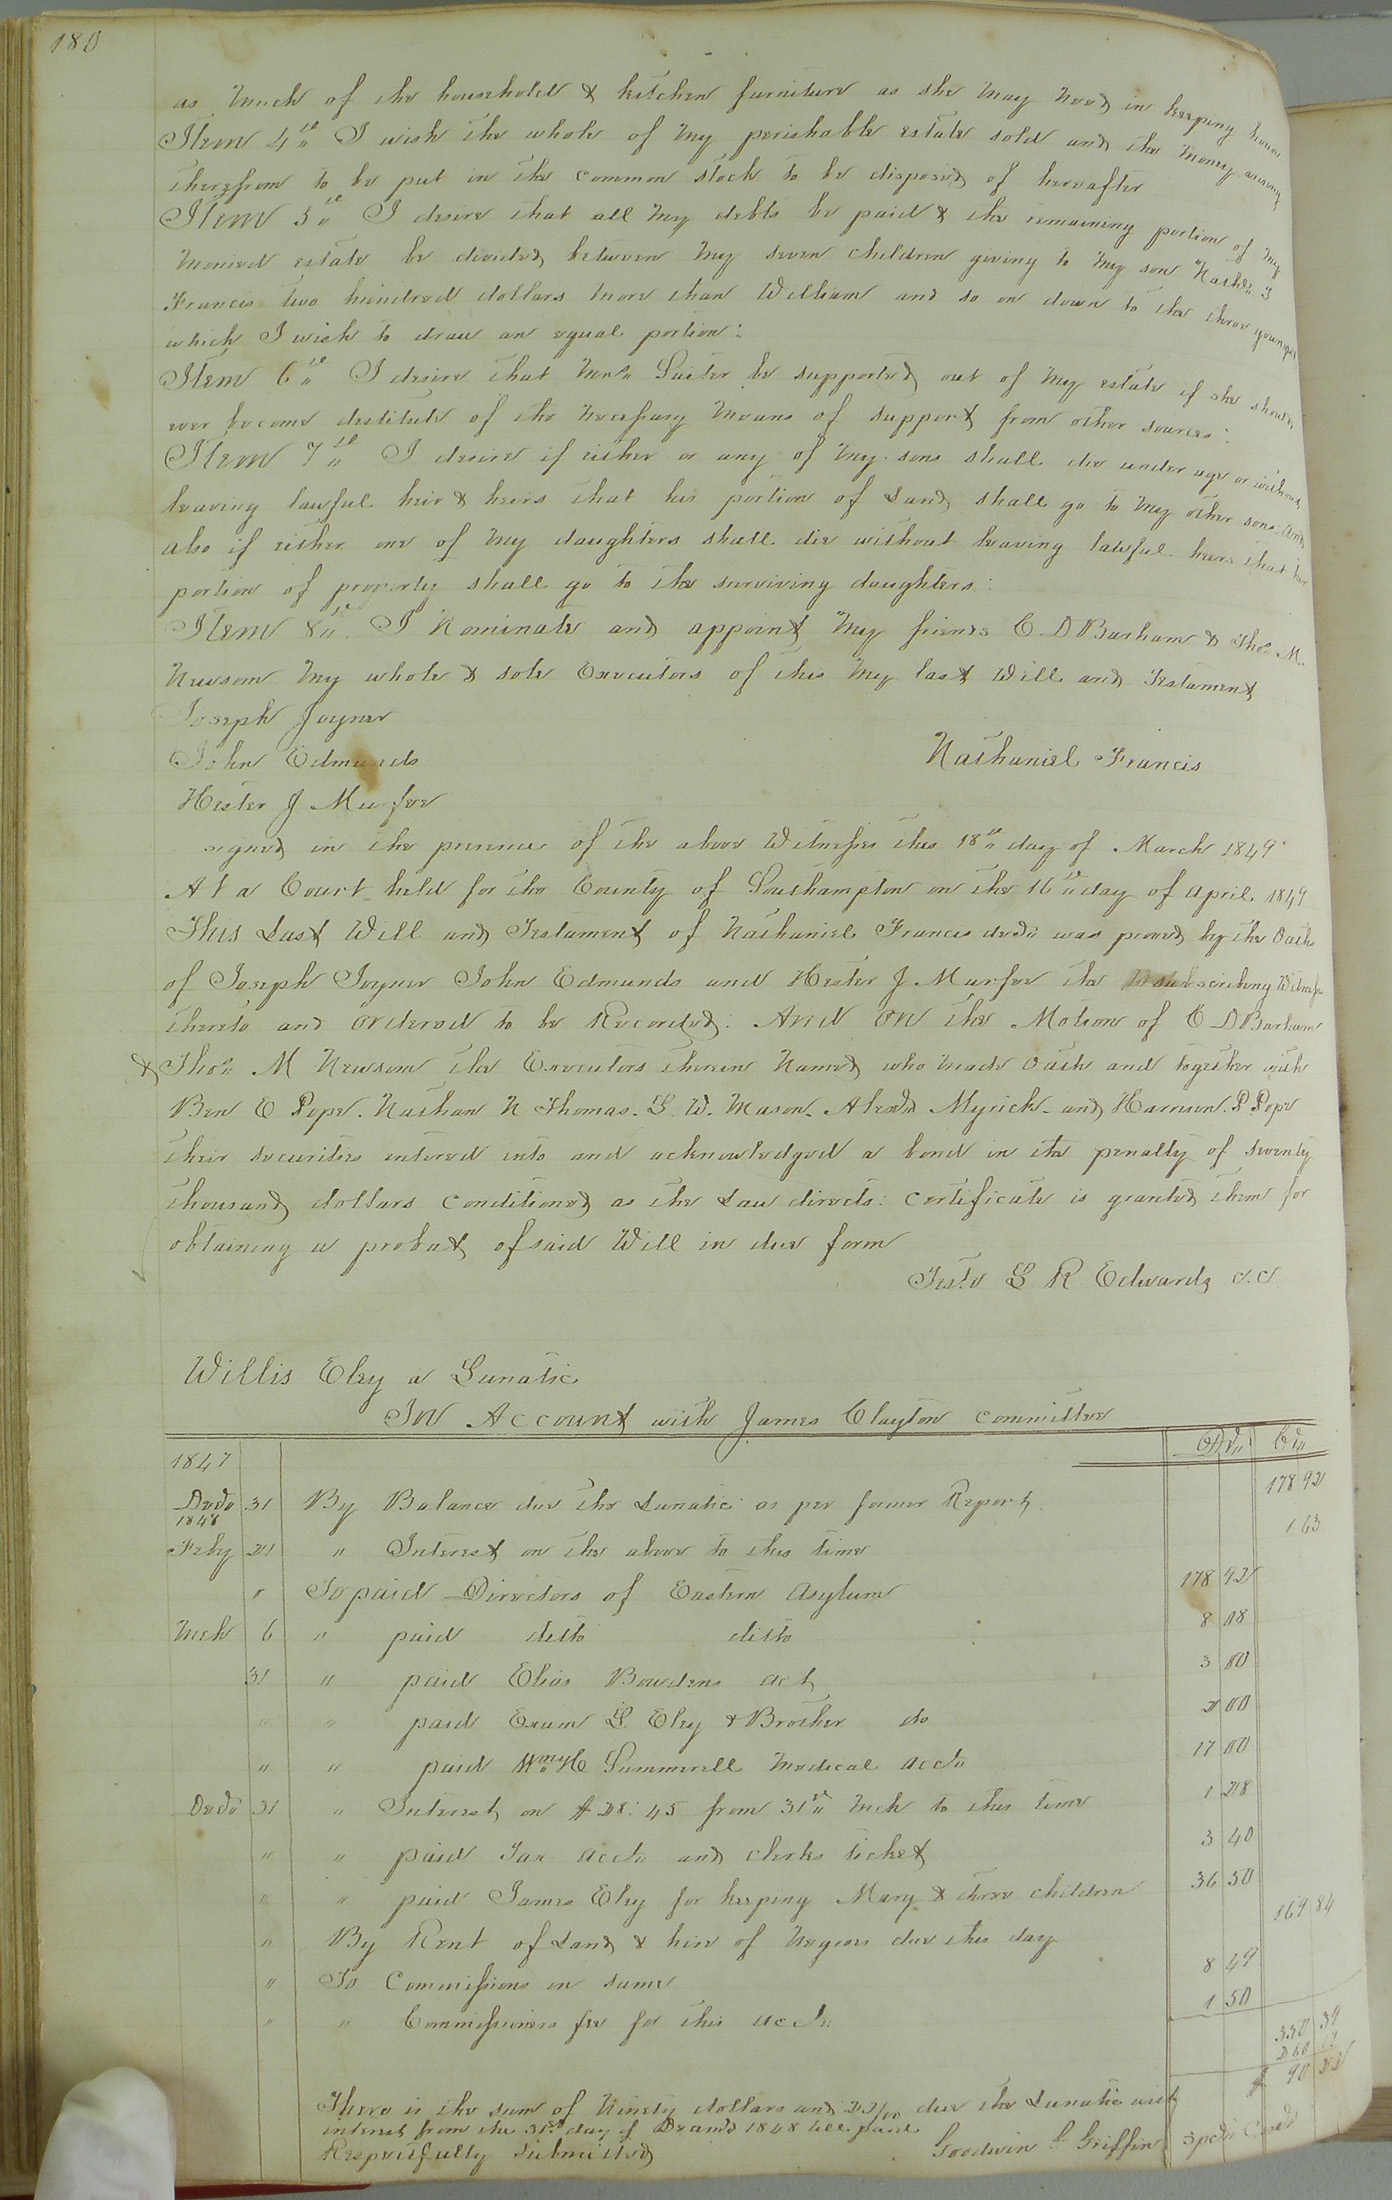 180
as much of the household & kitchen furniture as she may need in keeping house
Item 4th I wish the whole of my perishable estate sold and the money arising
therefrom to be put in the common stock to be disposed of hereafter
Item 5th I desire that all my debts be paid & the remaining portion of my
monied estate be divided between my seven children giving to my son
Francis two hundred dollars more than William and so on down to the three younger
which I wish to draw an equal portion:
Item 6th I desire that Mrs Suiter be supported out of my estate if she should
ever become destitute of the necessary means of support from other sources:
Item 7th I desire if either or any of my sons shall die under age or without
leaving lawful heir & heirs that his portion of Land shall go to my other sons: and
also if either one of my daughters shall die without leaving lawful heirs that her
portion of property shall go to the surviving daughters:
Item 8th I Nominate and appoint my friends C D Barham & Thos. M.
Newsom my whole & sole Executors of this my last Will and Testament
Joseph Joyner
John Edmunds
Nathaniel Francis
Hester J Murfee
signed in the presence of the above Witnesses this 18th day of March 1849
At a Court held for the County of Southampton on the 16th day of April 1849
This Last Will and Testament of Nathaniel Francis decd. was proved by the Oaths
of Joseph Joyner John Edmunds and Hester J Murfee the subscribing Witnesses
thereto and ordered to be Recorded: And on the Motion of C D Barham
& Thos. M Newsom the Executors therein Named who made Oath and together with
Ben C Pope. Nathan N Thomas. L. W. Mason. Alexdr Myrick. and Harrison. P Pope
their securities entered into and acknowledged a bond in the penalty of seventy
thousand dollars Conditioned as the Law directs: Certificate is granted them for
obtaining a probat of said Will in due form
Teste L R Edwards c.c
Willis Eley a Lunatic
In Account with James Clayton Committee
1847 Dr. Cr.
Decr 31 By Balance due the Lunatic as per former Report 178 92
1848
Feby 21 " Interest on the above to this time 1 63
" To paid Directors of Eastern Asylum 178 92
Mch 6 " paid ditto ditto 8 08
31 " paid Elias Bowdens act 3 00
" " paid Exum L. Eley & Brother do 2 00
" " paid H C Summerell Medical acct. 17 00
Decr 31 " Interest on $28:45 from 31st Mch to this time 1 28
" " paid Tax acct. and clerks ticket 3 40
" " paid James Eley for keeping Mary & three children 36 50
" By Rent of Land & hire of Negroes due this day 169 84
" To Commissions on same 8 49
" " Commissioners fee for this acct. 1 50
350 39
260 17
$ 90 22
There is the sum of Ninety dollars and 22/100 due the Lunatic with
interest from the 31st day of Decemb 1848 till paid
Respectfully Submitted
Goodwin Griffin